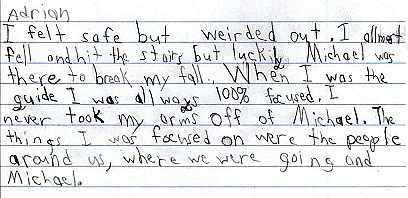 Adrian
I felt safe but weirded out. I allmost
fell and hit the stairs but luckily Michael was
there to break my fall. When I was the
guide I was allways 100% focused. I
never took my arms off of Michael. The
things I was focused on were the people
around us, where we were going and
Michael.